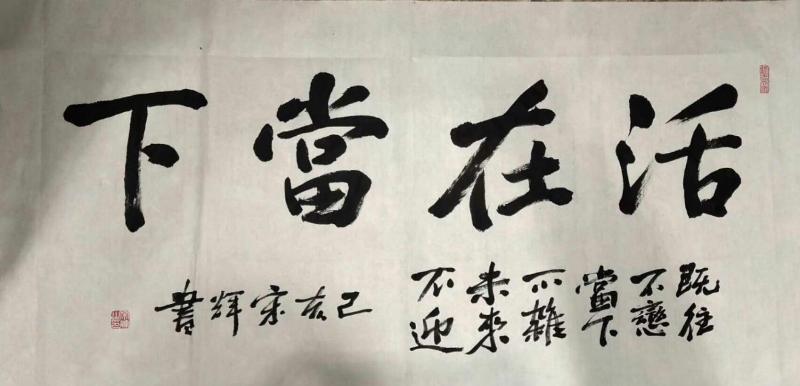 活在當下
既往
不戀
當下
不雜
未來
不迎
己亥宋輝書